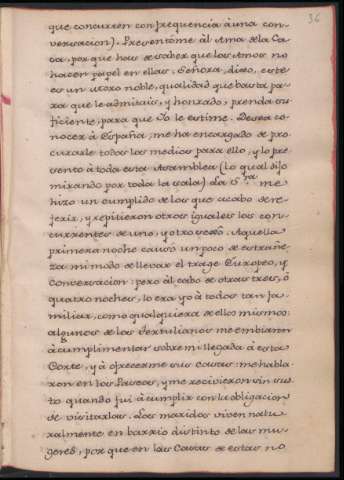 36
que concurren con frequencia à una con-
versacion). Presentóme àl Ama de la Ca-
sa, por que has de saber que los Amos no
hacen papel en ellas. Señora, dixo, este
es un Moro noble, qualidad que basta pa-
ra que le admitais, y honrado; prenda su-
ficiente, para que Yo le estime. Desea co-
nocer à España; me ha encargado de pro-
curarle todos los medios para ello, y lo pre-
sento à toda esta Asamblea (lo qual dijo
mirando por toda la sala) La S.ra me
hizo un cumplido de los que acabo de re-
ferir, y repitieron otros iguales los con-
currentes de uno, y otro sexô. Aquella
primera noche causò un poco de estrañe-
za mi modo de llevar el trage Europeo, y
Conversacion: pero àl cabo de otras tres, ó
quatro noches, lo era yo à todos tan fa-
miliar, como qualquiera de ellos mismos:
algunos de los Tertulianos me embiaron
à cumplimentar sobre mi llegada à esta
Corte, y à ofrecerme sus Casas: me habla-
ron en los Paseos, y me recivieron sin sus-
to quando fui à cumplir con la obligacion
de visitarlos. Los maridos viven natu-
ralmente en barrio distinto de las mu-
geres, por que en las Casas de estas no